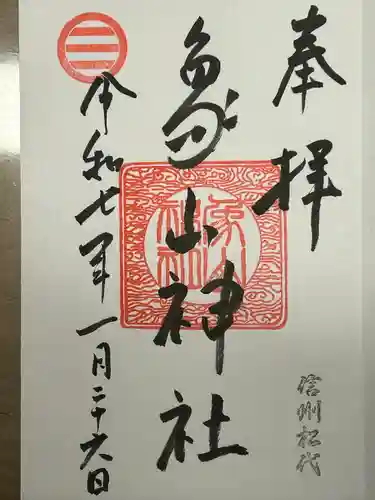 奉拝
信州松代
象山神社
象山神社
令和七年一月二十六日